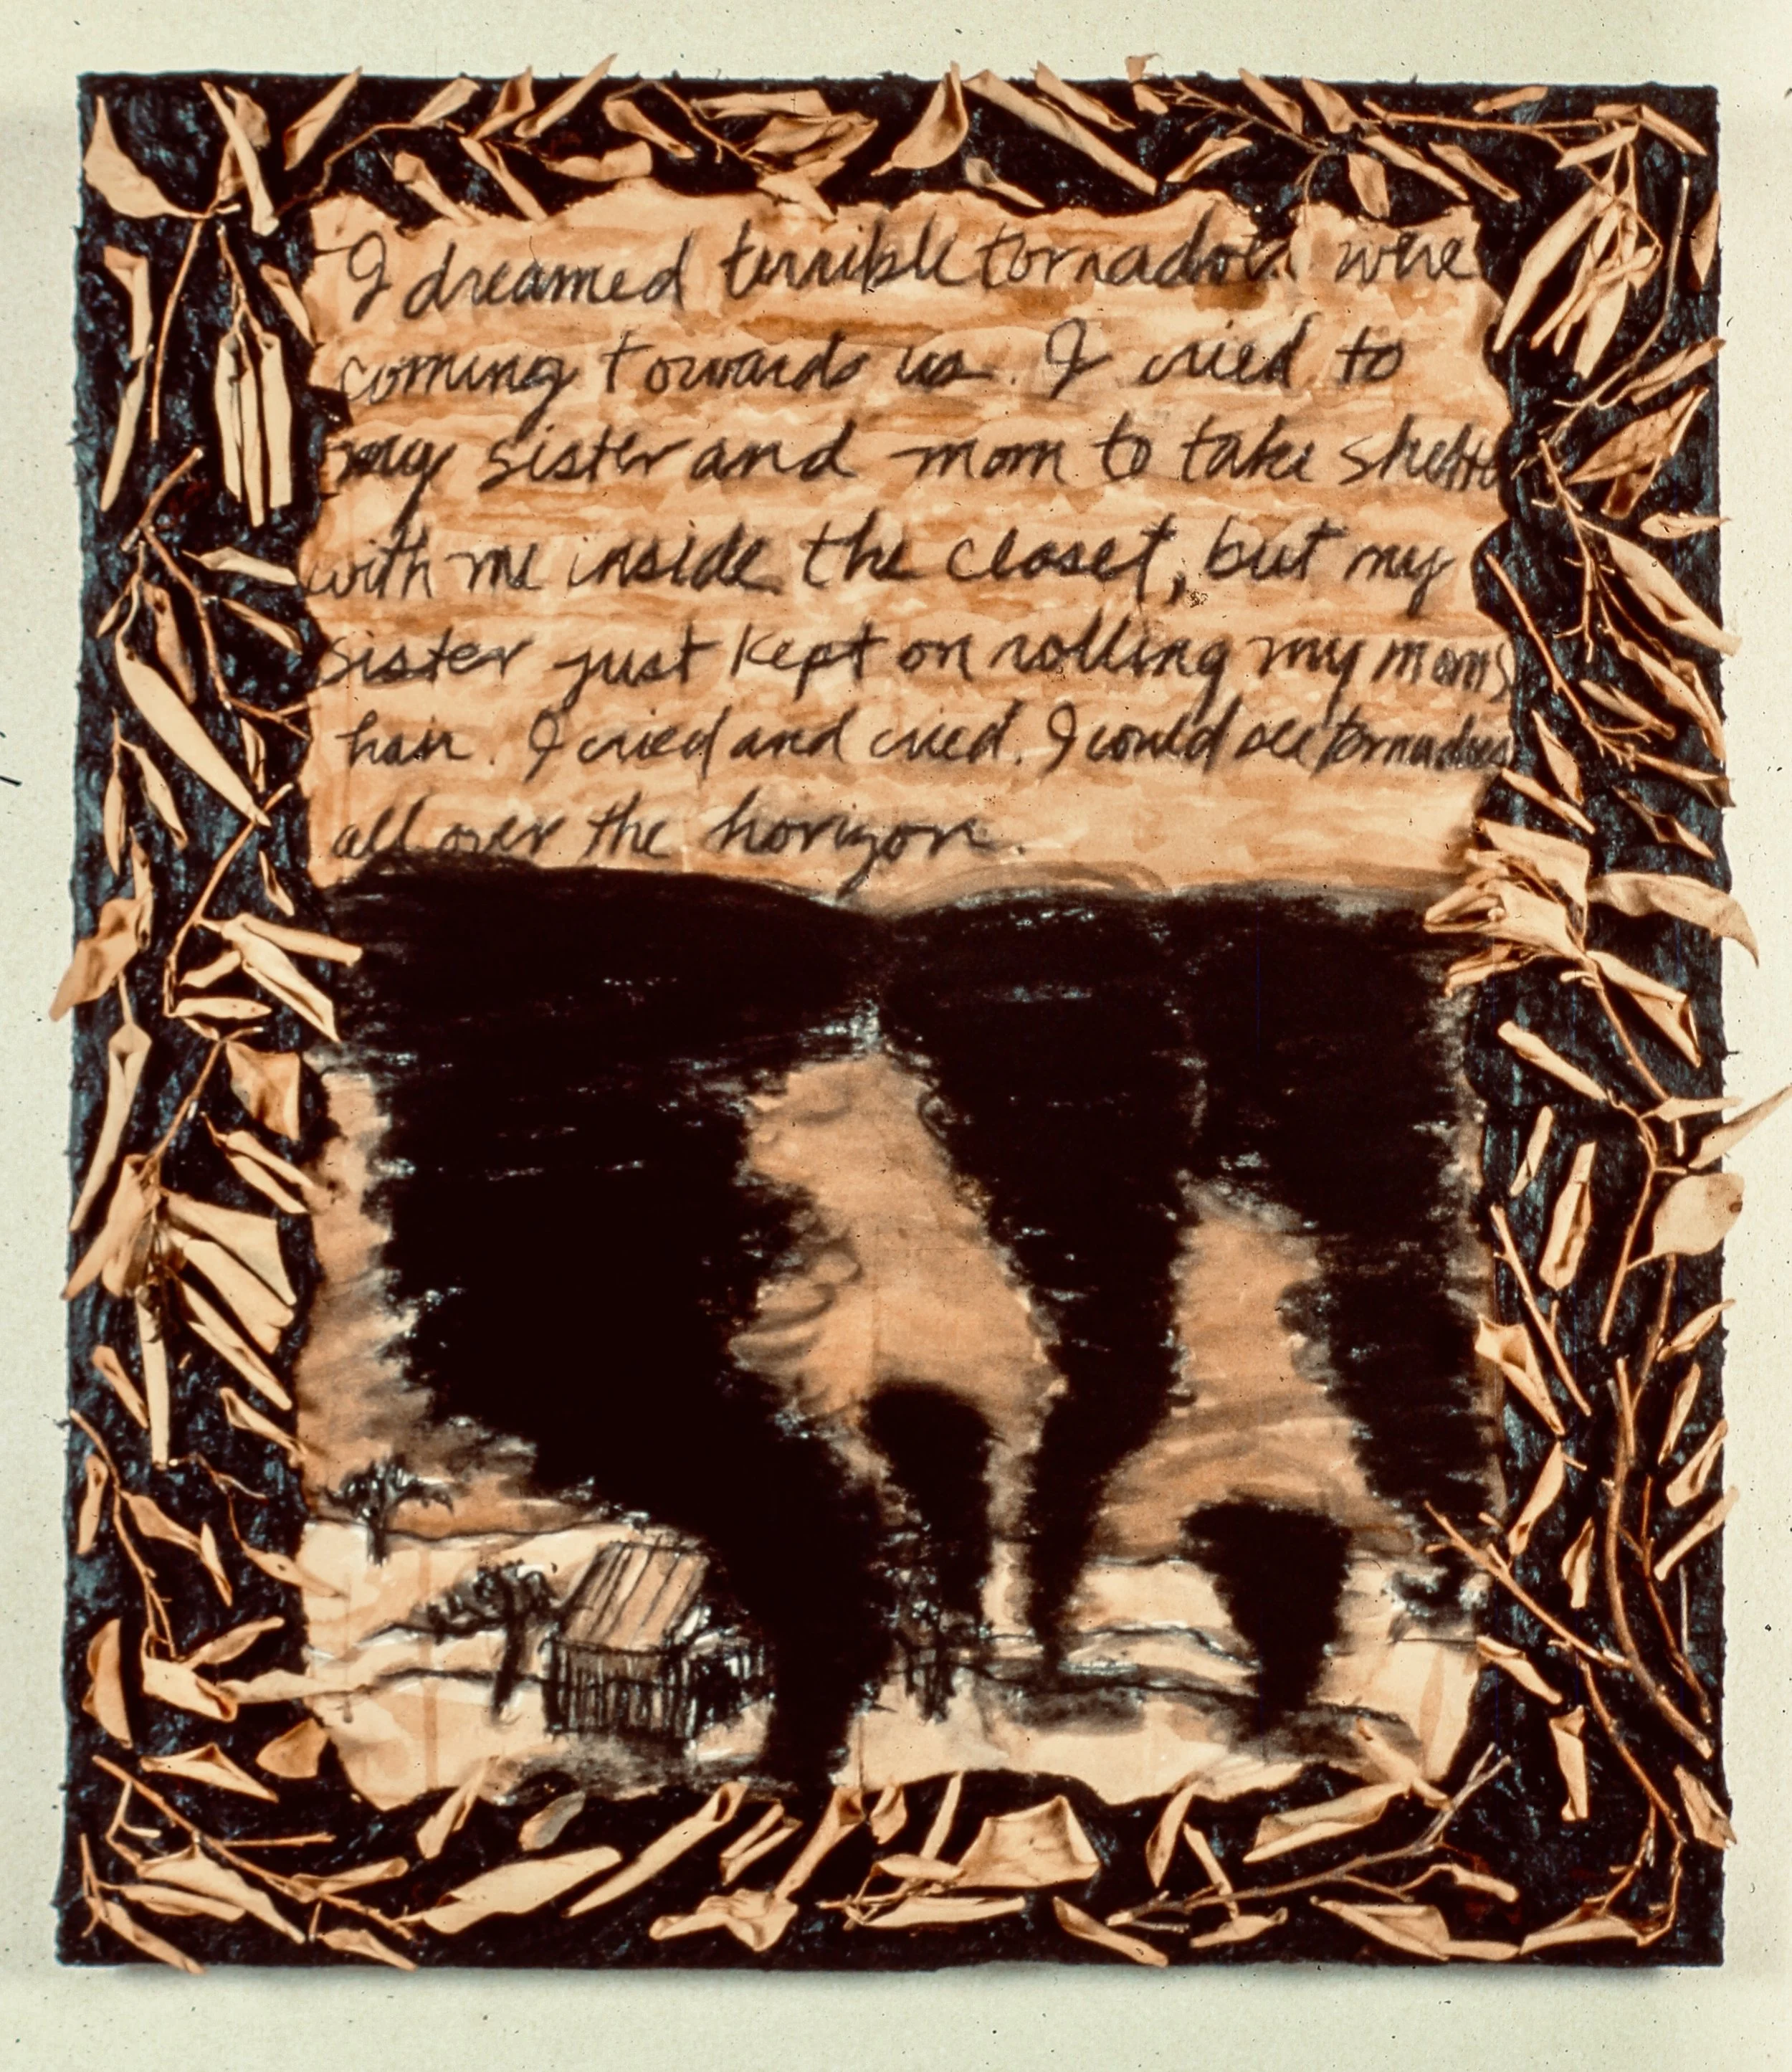 I dreamed terrible tornadoes were
coming towards us. I cried to
my sister and mom to take shelter
with me inside the closet, but my
sister just kept on rolling my moms
hair. I cried and cried. I could see tornadoes
all over the horizon.